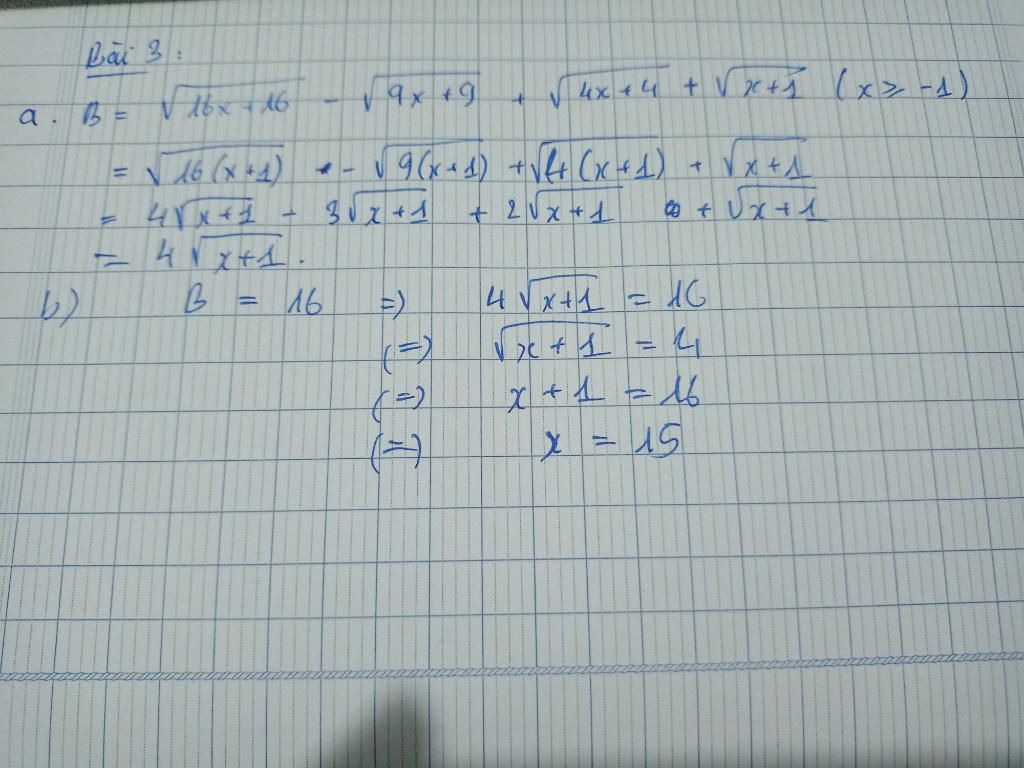 Bài 3 :
a. B = √16x+16 - √9x+9 + √4x+4 + √x+1 (x ≥ -1)
= √16(x+1) - √9(x+1) + √4(x+1) + √x+1
= 4√x+1 - 3√x+1 + 2√x+1 + √x+1
= 4√x+1.
b) B = 16 => 4√x+1 = 16
(=) √x+1 = 4
(=) x + 1 = 16
(=) x = 15